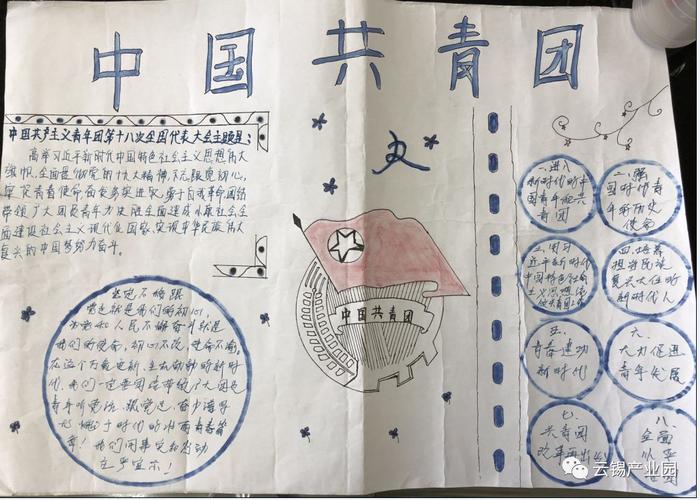 中国共青团
中国共产主义青年团第十八次全国代表大会主题是：
高举习近平新时代中国特色社会主义思想伟大
旗帜，全面贯彻党的十九大精神，不忘初心，
牢记青春使命
勇于自我革命团结
带领广大团员青年为决胜全面建成小康社会全
面建设社会主义现代化国家，实现中华民族伟大
复兴的中国梦努力奋斗。
坚定不移跟
党走就是我们的初心，
为党和人民不懈奋斗就是
我们的使命，初心不改，使命不渝。
在这个万象更新、生
新时
代，我们一定要团结带领广大团员
青年听党话、跟党走
书写
时代的
青春篇
章！我们用事实和行动
庄严宣示！
中国共青团
一、进入
新时代的中
国青年和共
青团
二、强
国时代青
年新历史
使命
三、用习
近平新时代
中国特色社会
主义思想
四、培养
担当民族
复兴大任的
新时代人
五、
青春建功
新时代
六、
大力促进
青年发展
七、
共青团
改革再出发
八、
全面
从严
云锡产业园